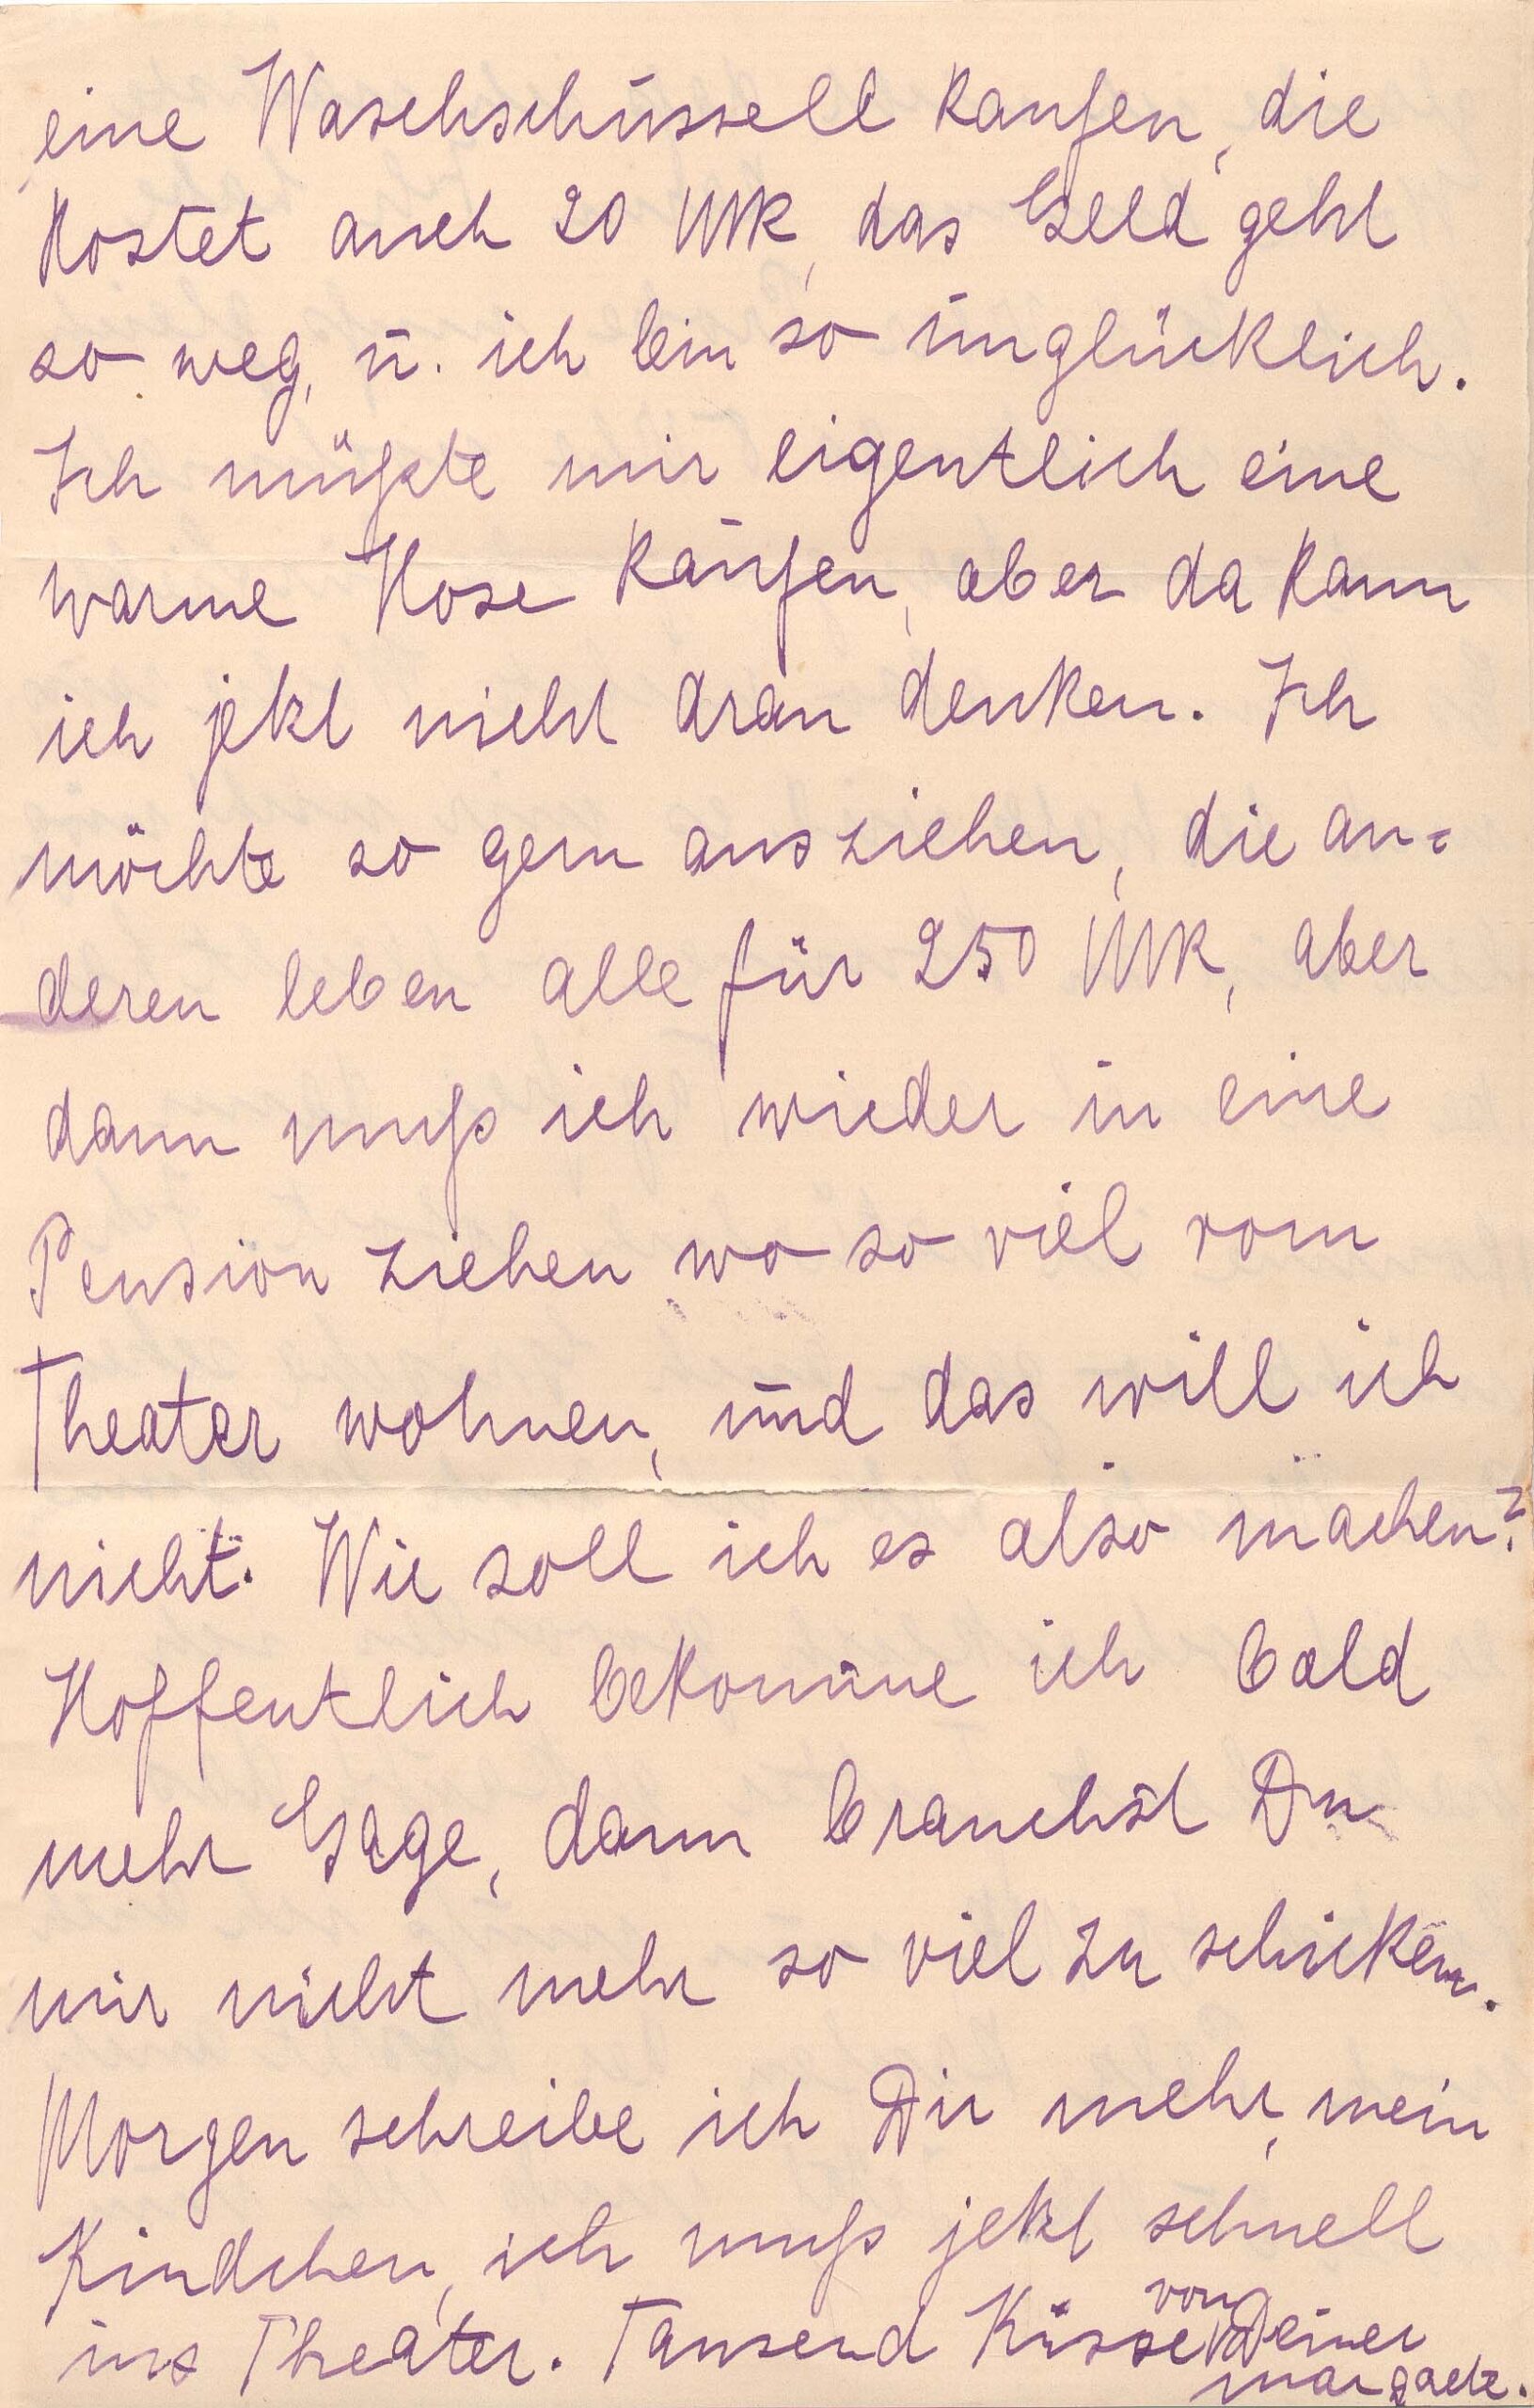 eine Waschschüssell kaufen, die
kostet auch 20 Mk, das Geld geht
so weg, u. ich bin so unglücklich.
Ich müßte mir eigentlich eine
warme Hose kaufen, aber da kann
ich jetzt nicht dran denken. Ich
möchte so gern ausziehen, die an=
deren leben alle für 250 Mk, aber
dann muß ich wieder in eine
Pension ziehen wo so viel vom
Theater wohnen, und das will ich
nicht. Wie soll ich es also machen?
Hoffentlich bekomme ich bald
mehr Gage, dann brauchst Du
mir nicht mehr so viel zu schicken.
Morgen schreibe ich Dir mehr, mein
Kindchen, ich muß jetzt schnell
ins Theater. Tausend Küsse von Deiner